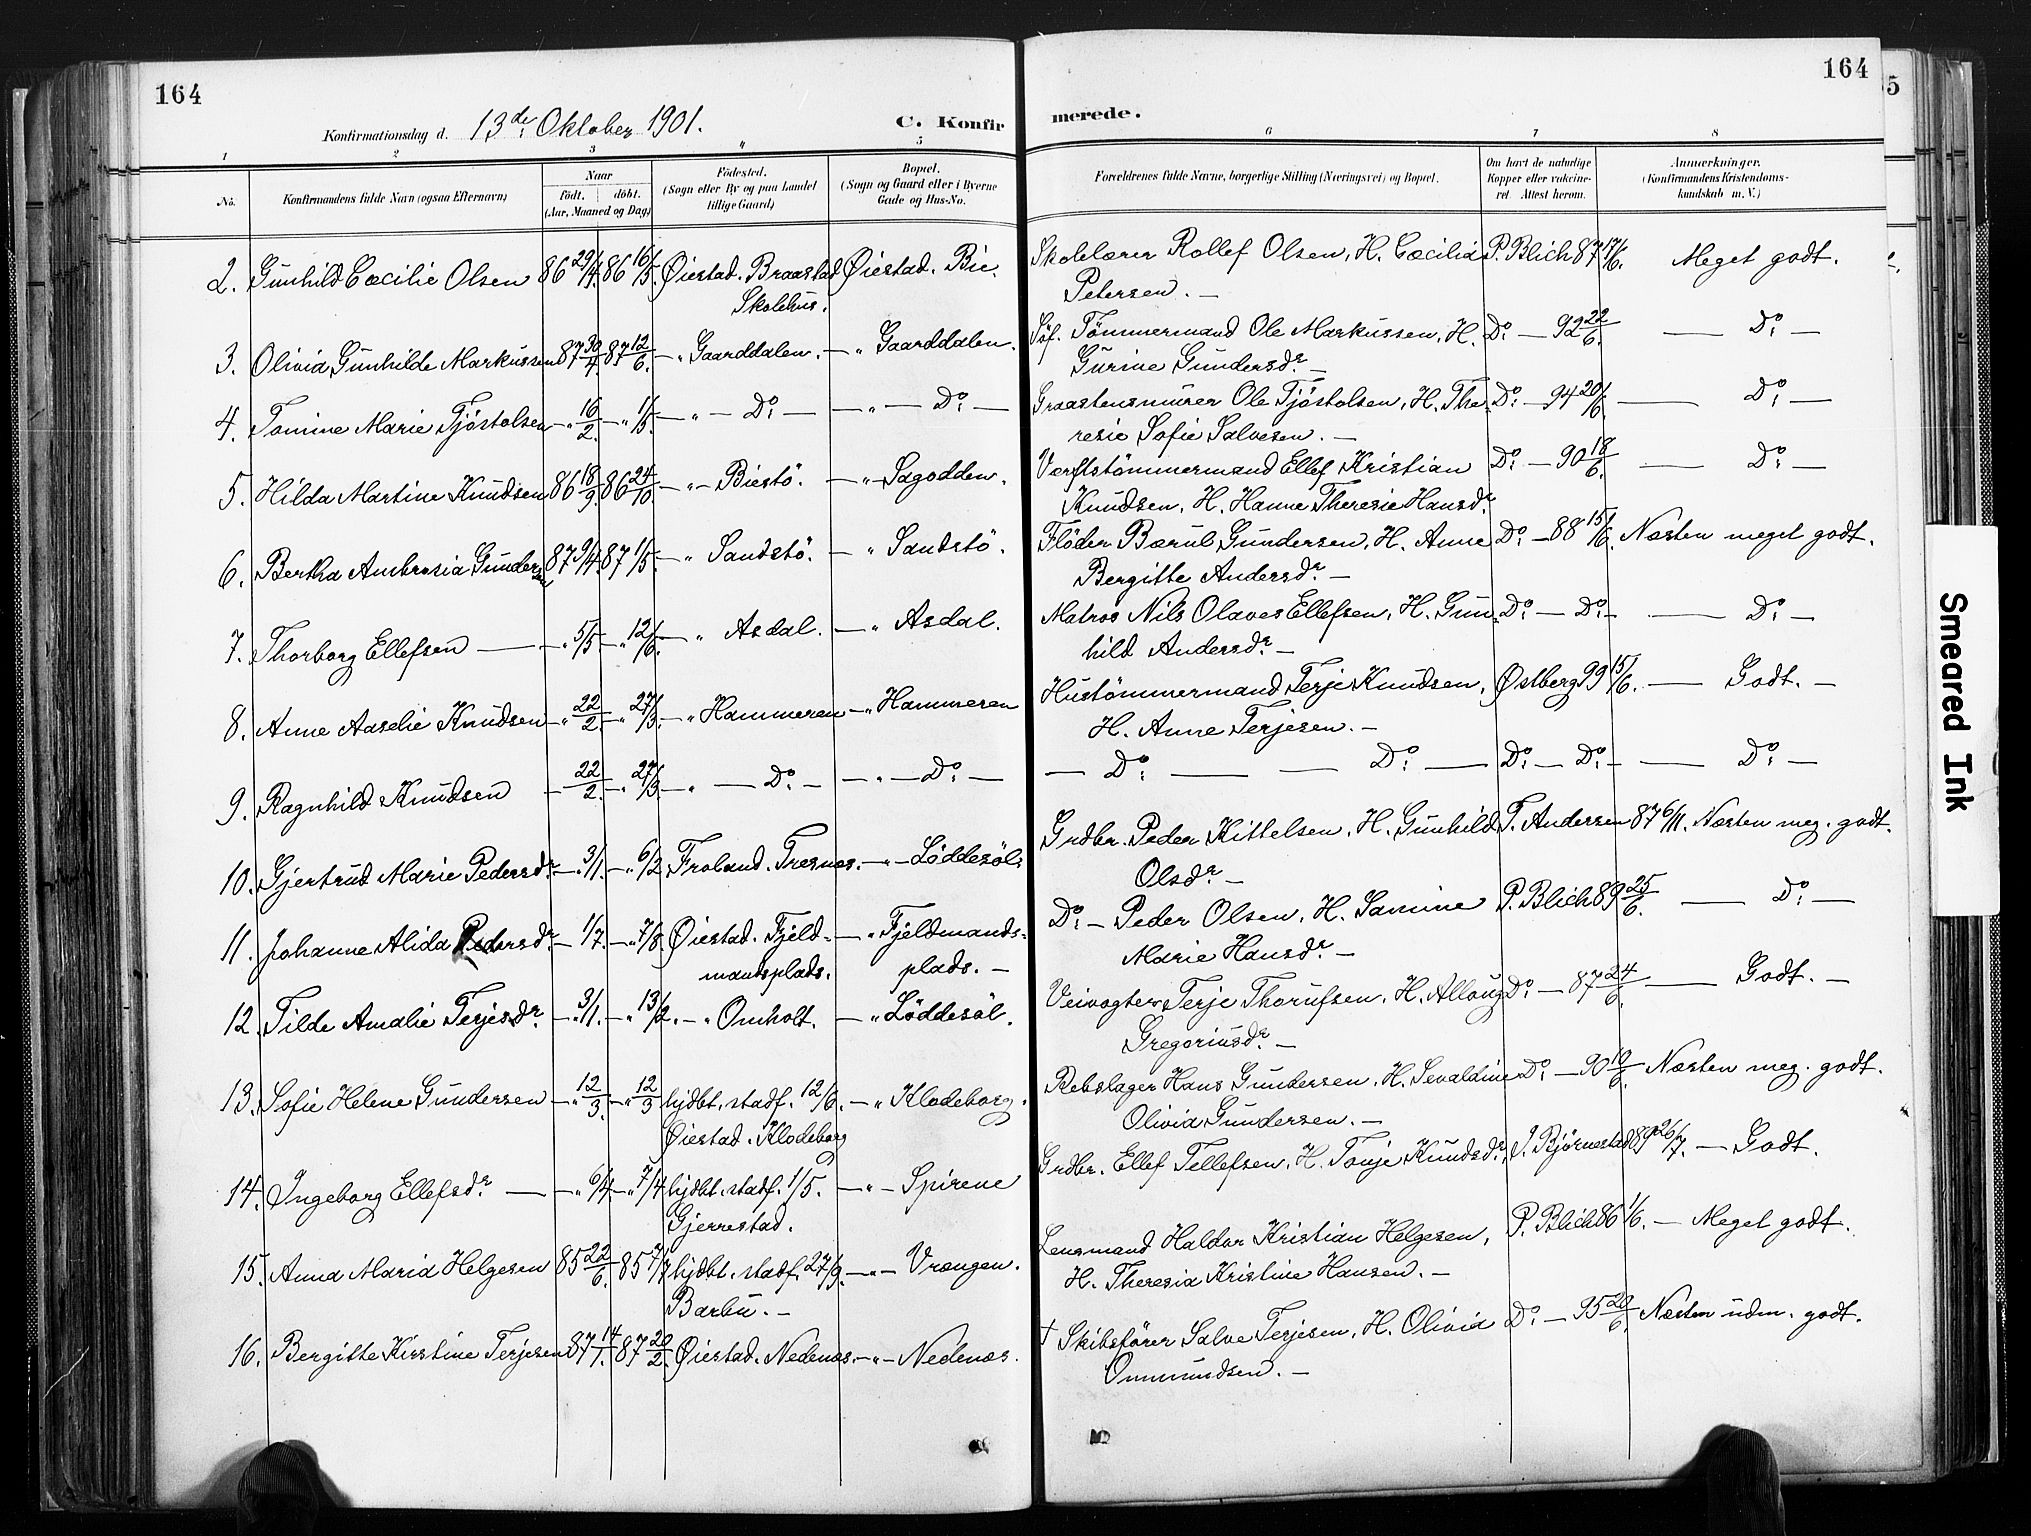 164
164
5
Konfirmationsdag d. 13de Oktober 1901.
C. Konfir
merede.
1 2 3 " 5 6 7 8
No. Konfirmandens fulde Navn (ogsaa Efternavn)
Naar
födt. döbt.
(Aar, Maaned og Dag)
Födested.
(Sogn eller By og paa Landet
tillige Gaard)
Bopæl.
(Sogn og Gaard eller i Byerne
Gade og Hus-No.
Forældrenes fulde Navne, borgerlige Stilling (Næringsvei) og Bopæl.
Om havt de naturlige
Kopper eller vakcine-
ret. Attest herom.
Anmærkninger.
(Konfirmandens Kristendoms-
kundskab m. V.)
2. Gunhild Cæcilie Olsen 86 29/4. 86 16/5. Øiestad. Braastad Øiestad. Bie. Skolelærer Rollef Olsen, H. Cæcilia P. Blich 87 17/6. Meget godt.
Skolehus. Petersen. —
3. Olivia Gunhilde Markussen 87 30/4. 87 12/6. — " Gaarddalen. — " Gaarddalen. Söf. Tømmermand Ole Markussen, H. Do — 92 22/6. — Do: —
Gurine Gundersdr. —
4. Tomine Marie Tjöstolsen — " 16/2. — " 1/5. — " — Do: — — " — Do: — Graastensmurer Ole Tjöstolsen, H. The- Do: — 94 20/6. — Do: —
resie Sofie Salvesen. —
5. Hilda Martine Knudsen 86 18/9. 86 24/10. — " — Biestö. — " — Sagodden. Verftstömmermand Ellef Kristian Do: — 90 18/6. — Do: —
Knudsen, H. Hanne Theresie Hansdr.
6. Bertha Ambrosia Gundersen 87 9/4. 87 1/5. — " Sandstö. — " Sandstö. Fløder Bærul Gundersen, H. Anne Do: — 88 15/6. Næsten meget godt.
Bergitte Andersdr. —
7. Thorborg Ellefsen — — " 5/5 — " 12/6. — " Asdal. — " Asdal. Matros Nils Olaves Ellefsen, H. Gun- Do: — Do: — — Do: —
hild Andersdr. —
8. Anne Aaselie Knudsen — " 22/2. — " 27/3. — " Hammeren — " Hammeren Hustömmermand Terje Knudsen, Østberg 99 15/6. — Godt. —
H. Anne Terjesen. —
9. Ragnhild Knudsen — 22/2. — " 27/3. — " — Do. — — " — Do: — — Do: — — Do: — Do: — Do: — — Do: —
10. Gjertrud Marie Pedersdr. — " 3/1. — " 6/2 Froland. Tresnes. — " — Løddesöl. Grdbr. Peder Kittelsen, H. Gunhild T. Andersen 87 6/11. Næsten meg. godt.
Olsdr. —
11. Johanne Alida Pedersdr. — 1/7. — " 7/8. Øiestad. Fjeld- — " Fjeldmands- Do: — Peder Olsen, H. Samine P. Blich 89 25/6. — Do: —
mandsplads. plads. — Marie Hansdr. —
12. Tilde Amalie Terjesdr. — " 3/1. — " 13/2. — " Omholt. — " Løddesöl. Veivogter Terje Thorufsen, H. Alloug Do: — 87 24/6. — Godt. —
Gregoriusdr. —
13. Sofie Helene Gundersen — " 12/3. — " 12/3 hjdbt. stadf. 12/6. — " Klodeborg. Rebslager Hans Gundersen, H. Sevaldine Do: — 90 10/6. Næsten meg. godt.
Øiestad. Klodeborg Olivia Gundersen. —
14. Ingeborg Ellefsdr. — — " 6/4 — " 7/4 hjdbt. stadf. 1/5. — " — Spirene Grdbr. Ellef Tellefsen, H. Tonje Knudsdr. J. Bjørnestad 89 26/7. — Godt.
Gjerrestad.
15. Anna Maria Helgesen 85 22/6. 85 7/7 hjdbt. stadf. 27/9. — " — Vrengen. Lensmand Haldor Kristian Helgesen, P. Blich 86 1/6. — Meget godt.
Barbu. — H. Theresia Kristine Hansen. —
16. Bergitte Kirstine Terjesen 87 14/1. 87 20/2. Øiestad. Nedenæs. — " — Nedenæs. † Skibsfører Salve Terjesen, H. Olivia Do — 95 20/6. Næsten udm. godt.
Ommundsen. —
Smeared Ink